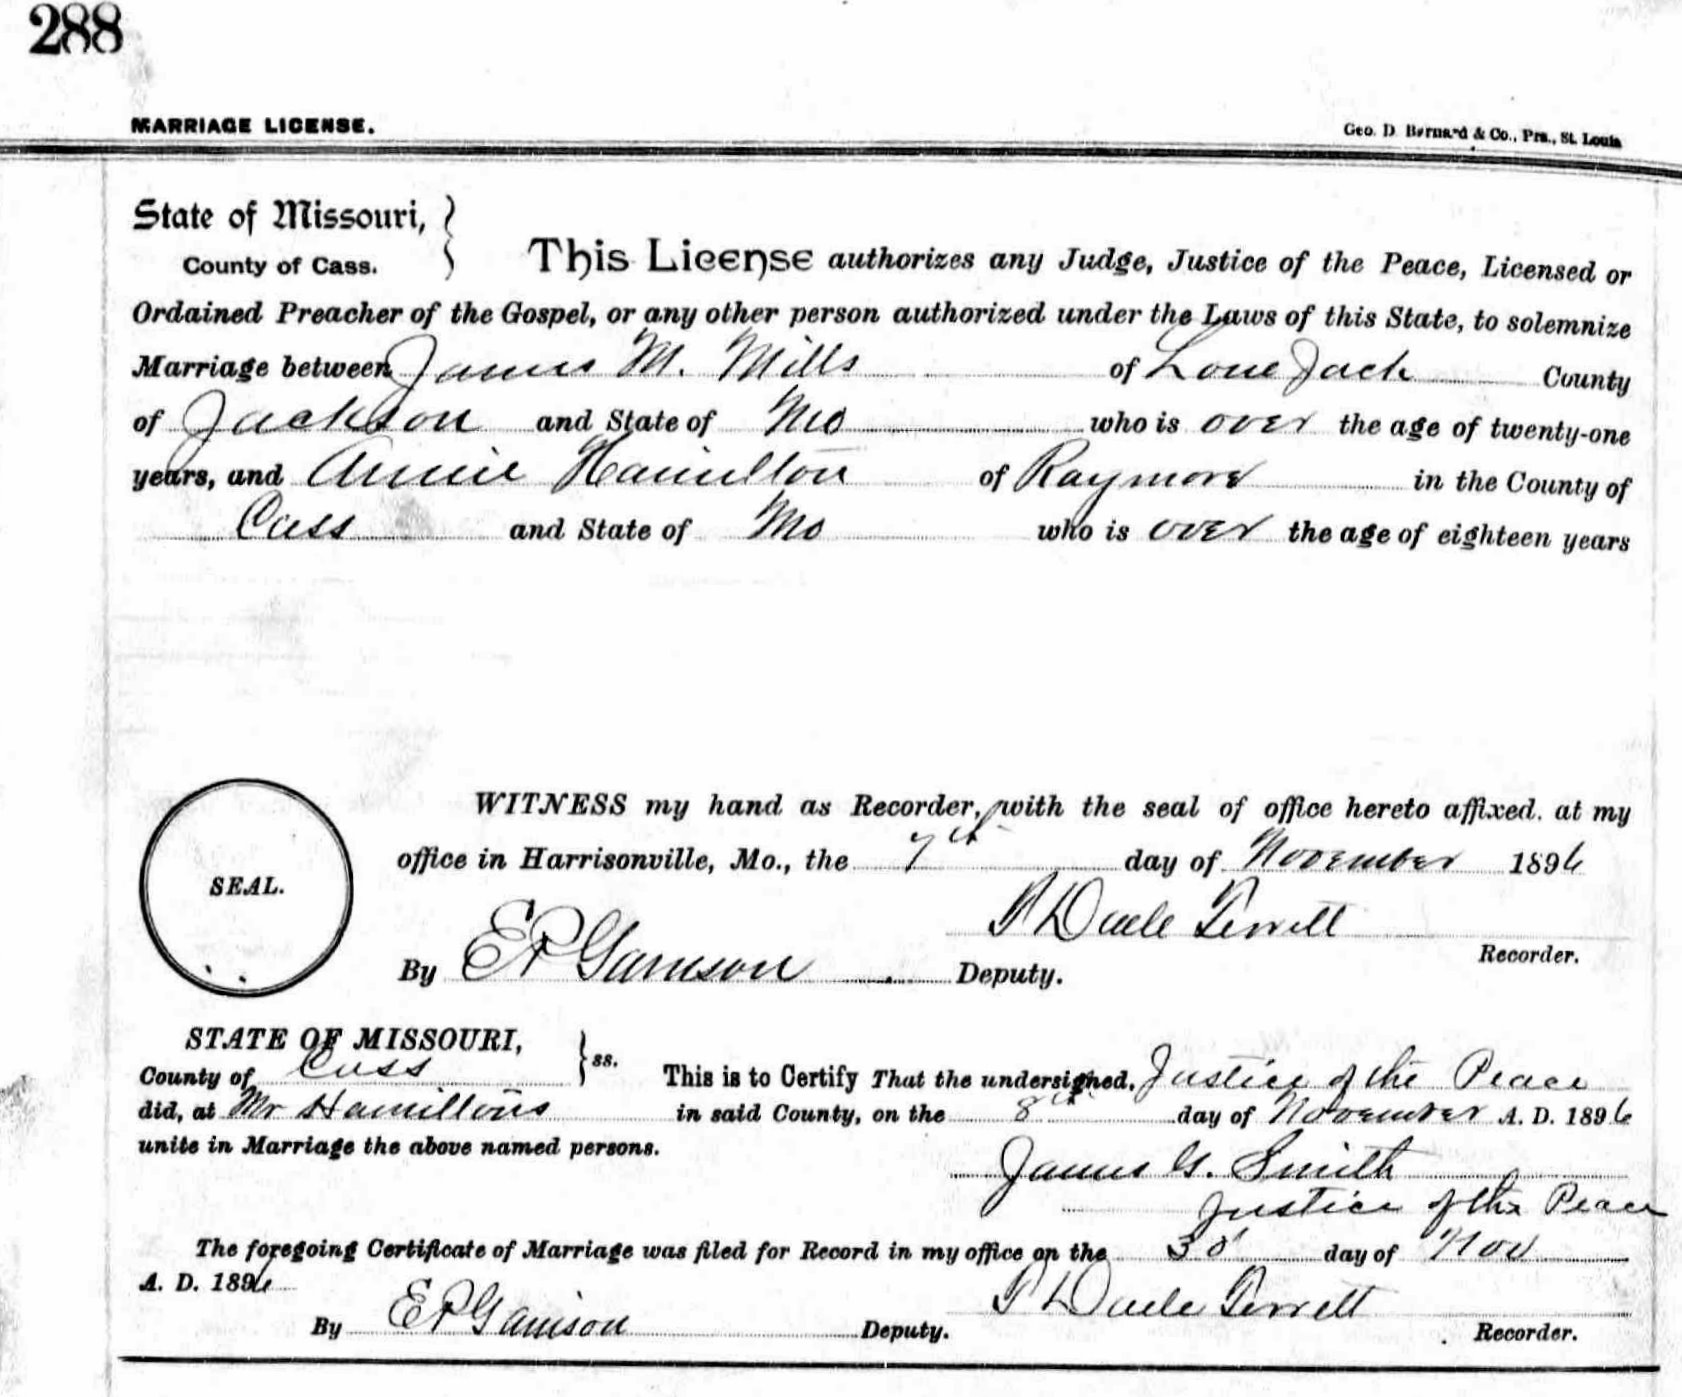 288
MARRIAGE LICENSE.
Geo. D. Barnard & Co., Prs., St. Louis
State of Missouri,
County of Cass.
This License authorizes any Judge, Justice of the Peace, Licensed or
Ordained Preacher of the Gospel, or any other person authorized under the Laws of this State, to solemnize
Marriage between James M. Mills of Lone Jack County
of Jackson and State of Mo who is over the age of twenty-one
years, and Annie Hamilton of Raymore in the County of
Cass and State of Mo who is over the age of eighteen years
WITNESS my hand as Recorder, with the seal of office hereto affixed. at my
office in Harrisonville, Mo., the 7th day of November 1896
SEAL.
Terrell
Recorder.
By E P Garrison Deputy.
STATE OF MISSOURI,
County of Cass ss. This is to Certify That the undersigned, Justice of the Peace
did, at Mr Hamiltons in said County, on the 8th day of November A. D. 1896
unite in Marriage the above named persons.
James G. Smith
Justice of the Peace
The foregoing Certificate of Marriage was filed for Record in my office on the 30 day of Nov
A. D. 1896
Terrell
By E P Garrison Deputy. Recorder.